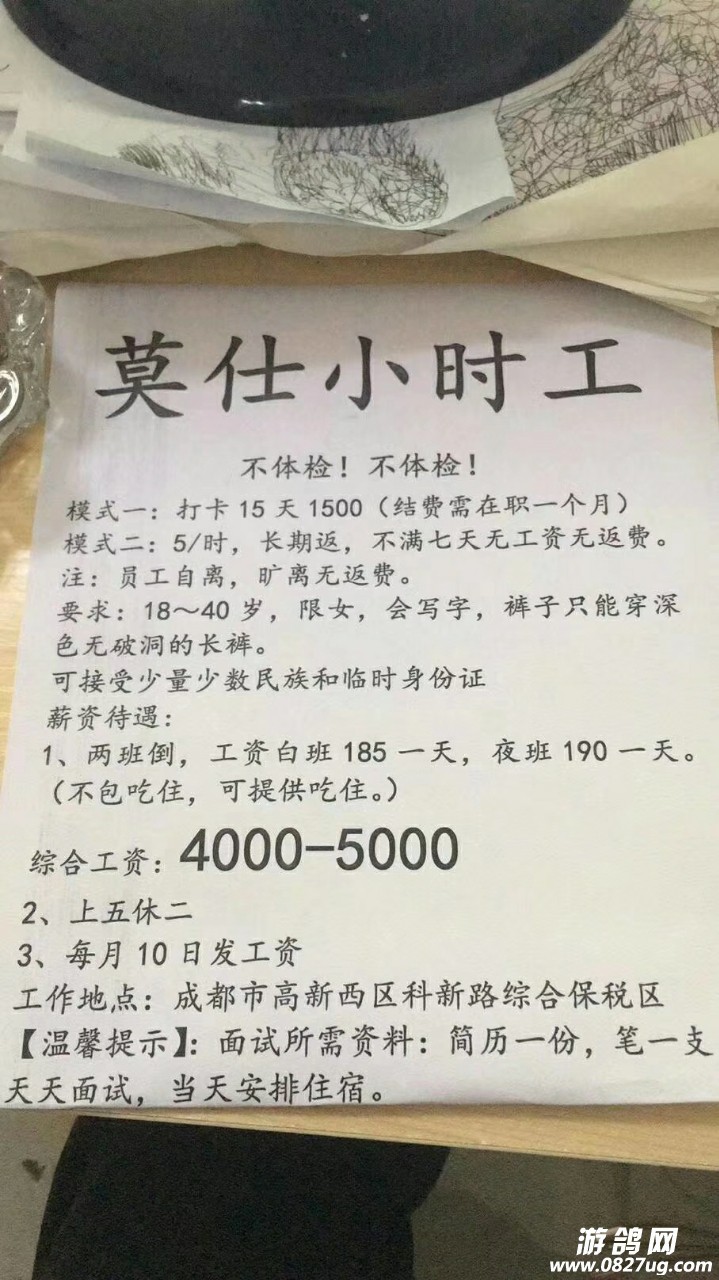 莫仕小时工
不体检！不体检！
模式一：打卡 15 天 1500（结费需在职一个月）
模式二：5/时，长期返，不满七天无工资无返费。
注：员工自离，旷离无返费。
要求：18～40 岁，限女，会写字，裤子只能穿深
色无破洞的长裤。
可接受少量少数民族和临时身份证
薪资待遇：
1、两班倒，工资白班 185 一天，夜班 190 一天。
（不包吃住，可提供吃住。）
综合工资：4000-5000
2、上五休二
3、每月 10 日发工资
工作地点：成都市高新西区科新路综合保税区
【温馨提示】：面试所需资料：简历一份，笔一支
天天面试，当天安排住宿。
游鸽网
www.0827ug.com